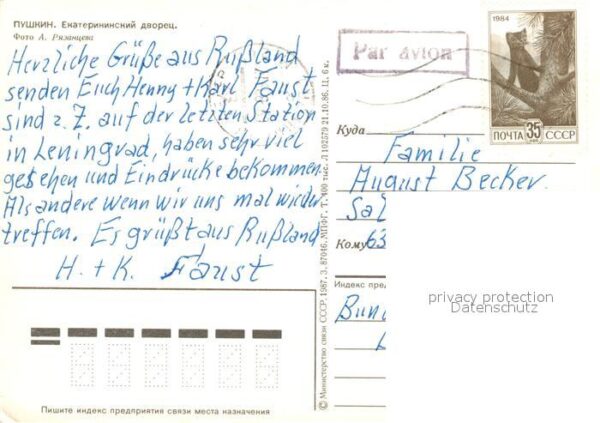 ПУШКИН. Екатерининский дворец.
Фото А. Рязанцева
Herzliche Grüße aus Rußland
senden Euch Henny + Karl Faust
sind z. Z. auf der letzten Station
in Leningrad, haben sehr viel
gesehen und Eindrücke bekommen.
Als andere wenn wir uns mal wieder
treffen. Es grüßt aus Rußland
H. + K. Faust
Пишите индекс предприятия связи места назначения
© Министерство связи СССР. 1987. З. 87046. МПФГ. Т. 400 тыс. Л 102579 21.10.86. Ц. 6 к.
Par avion
1984
ПОЧТА 35 СССР
Куда
Familie
August Becker
Sal
Кому 63
Индекс пред
Bun
privacy protection
Datenschutz